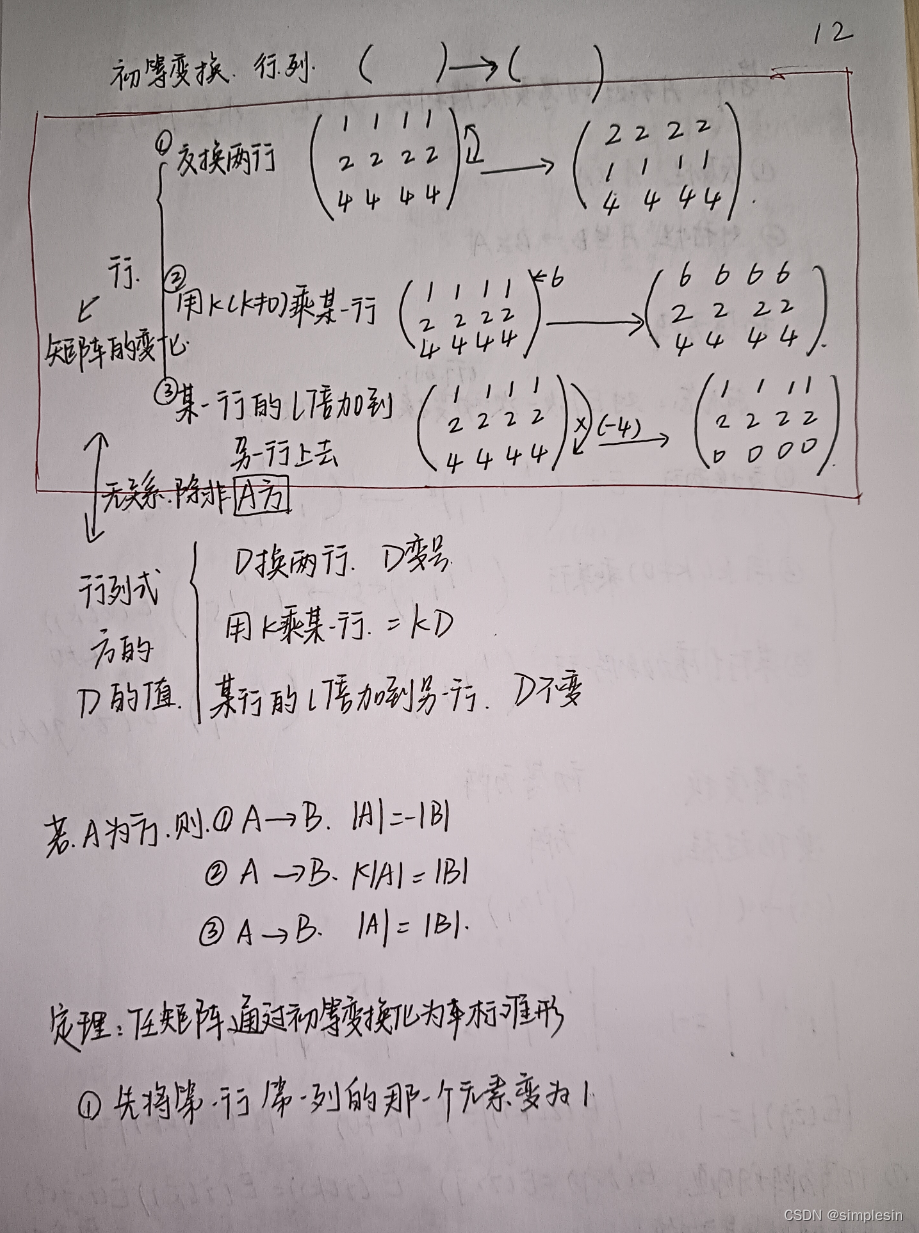 12
初等变换. 行列. ( ) → ( )
① 交换两行 (1 1 1 1 → (2 2 2 2
2 2 2 2 1 1 1 1
4 4 4 4) 4 4 4 4).
行.
② 用k(k≠0)乘某一行 (1 1 1 1 ←6 → (6 6 6 6
2 2 2 2 2 2 2 2
4 4 4 4) 4 4 4 4).
矩阵的变化
③ 某一行的l倍加到 (1 1 1 1 → (1 1 1 1
另一行上去 2 2 2 2 ×(-4) 2 2 2 2
4 4 4 4) 0 0 0 0).
无关系.除非 A方
行列式
方的
D的值.
D换两行. D变号
用k乘某一行. = kD
某行的l倍加到另一行. D不变
若.A为方.则.① A→B. |A|=-|B|
② A→B. k|A|=|B|
③ A→B. |A|=|B|.
定理:任矩阵通过初等变换化为标准形
① 先将第一行第一列的那一个元素变为1.
CSDN @simplesin